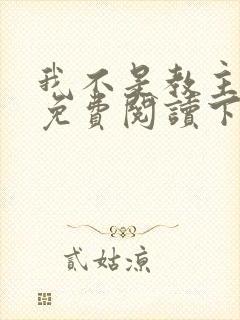 我不是教主
免費閱讀下
貳姑涼